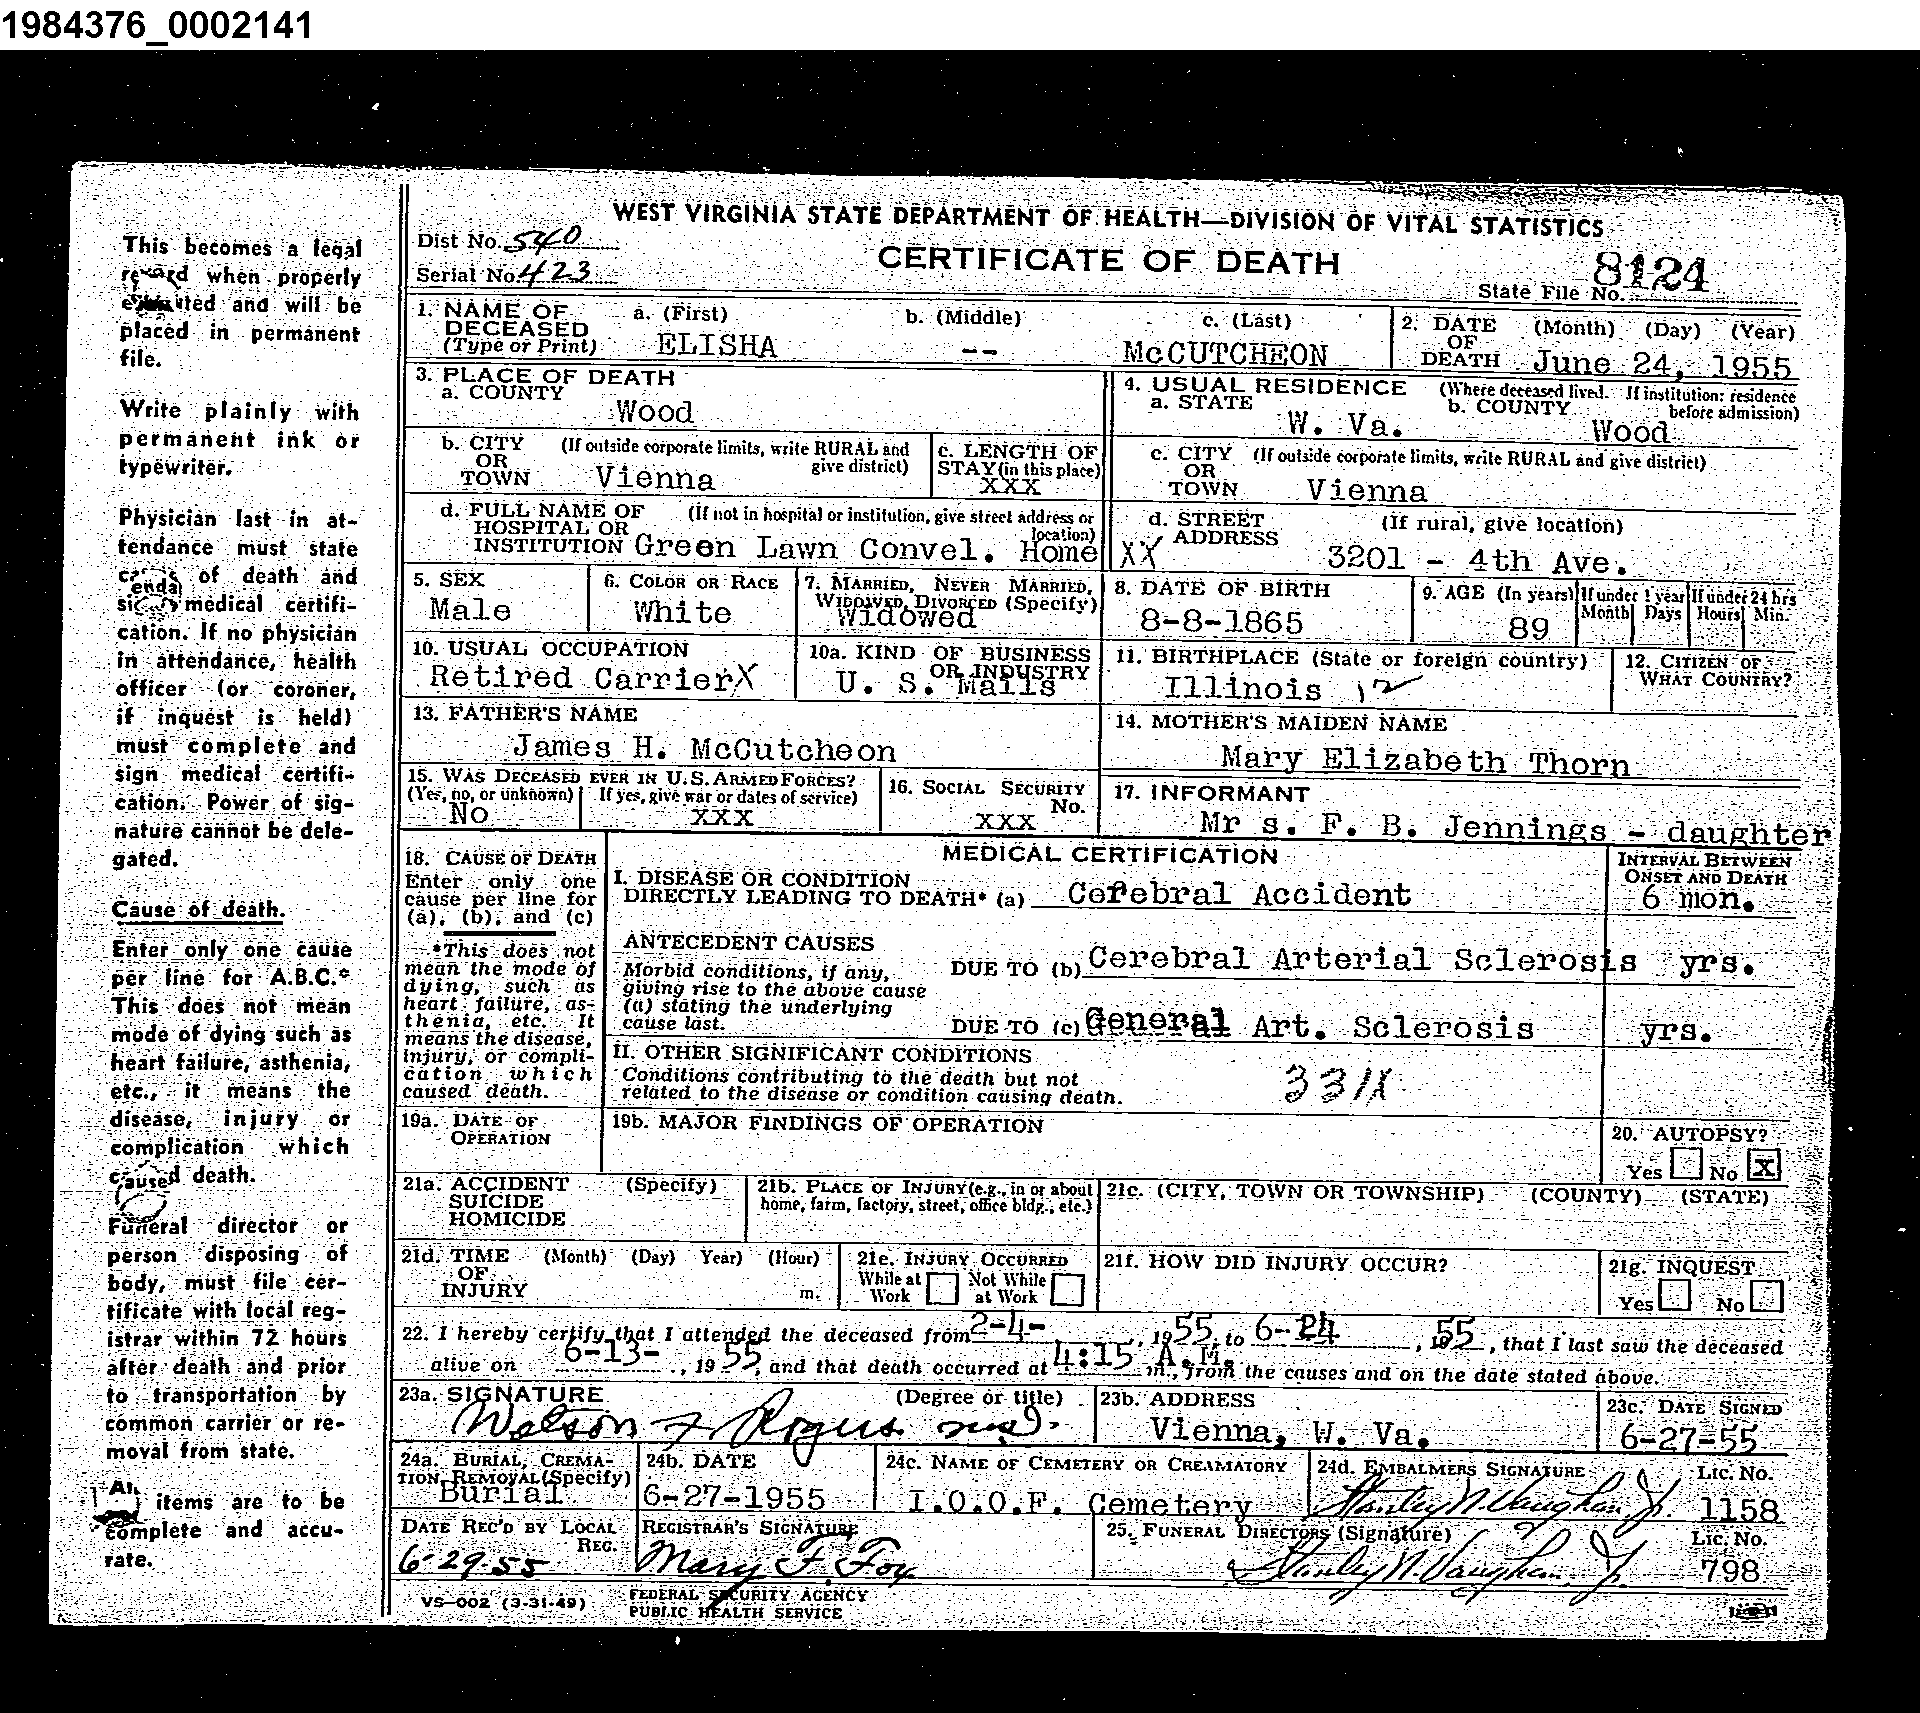 1984376_0002141
This becomes a legal
record when properly
executed and will be
placed in permanent
file.
Write plainly with
permanent ink or
typewriter.
Physician last in at-
tendance must state
cause of death and
sign medical certifi-
cation. If no physician
in attendance, health
officer (or coroner,
if inquest is held)
must complete and
sign medical certifi-
cation. Power of sig-
nature cannot be dele-
gated.
Cause of death.
Enter only one cause
per line for A.B.C.*
This does not mean
mode of dying such as
heart failure, asthenia,
etc., it means the
disease, injury or
complication which
caused death.
Funeral director or
person disposing of
body, must file cer-
tificate with local reg-
istrar within 72 hours
after death and prior
to transportation by
common carrier or re-
moval from state.
All items are to be
complete and accu-
rate.
WEST VIRGINIA STATE DEPARTMENT OF HEALTH—DIVISION OF VITAL STATISTICS
Dist No. 540
CERTIFICATE OF DEATH
Serial No. 423
State File No. 8124
1. NAME OF DECEASED (Type or Print) a. (First) b. (Middle) c. (Last)
ELISHA -- McCUTCHEON
2. DATE OF DEATH (Month) (Day) (Year)
June 24, 1955
3. PLACE OF DEATH
a. COUNTY
Wood
4. USUAL RESIDENCE (Where deceased lived. If institution: residence before admission)
a. STATE W. Va. b. COUNTY Wood
b. CITY OR TOWN (If outside corporate limits, write RURAL and give district)
Vienna
c. LENGTH OF STAY (in this place)
XXX
c. CITY OR TOWN (If outside corporate limits, write RURAL and give district)
Vienna
d. FULL NAME OF HOSPITAL OR INSTITUTION (If not in hospital or institution, give street address or location)
Green Lawn Convel. Home XX
d. STREET ADDRESS (If rural, give location)
3201 - 4th Ave.
5. SEX
Male
6. COLOR OR RACE
White
7. MARRIED, NEVER MARRIED, WIDOWED, DIVORCED (Specify)
Widowed
8. DATE OF BIRTH
8-8-1865
9. AGE (In years) If under 1 year Month Days If under 24 hrs Hours Min.
89
10. USUAL OCCUPATION
Retired Carrier X
10a. KIND OF BUSINESS OR INDUSTRY
U. S. Mails
11. BIRTHPLACE (State or foreign country)
Illinois
12. CITIZEN OF WHAT COUNTRY?
13. FATHER'S NAME
James H. McCutcheon
14. MOTHER'S MAIDEN NAME
Mary Elizabeth Thorn
15. WAS DECEASED EVER IN U.S. ARMED FORCES?
(Yes, no, or unknown) If yes, give war or dates of service)
No XXX
16. SOCIAL SECURITY No.
XXX
17. INFORMANT
Mr s. F. B. Jennings - daughter
MEDICAL CERTIFICATION
18. CAUSE OF DEATH
Enter only one
cause per line for
(a), (b), and (c)
*This does not
mean the mode of
dying, such as
heart failure, as-
thenia, etc. It
means the disease,
injury, or compli-
cation which
caused death.
INTERVAL BETWEEN ONSET AND DEATH
I. DISEASE OR CONDITION
DIRECTLY LEADING TO DEATH* (a) Cerebral Accident 6 mon.
ANTECEDENT CAUSES
Morbid conditions, if any,
giving rise to the above cause
(a) stating the underlying
cause last.
DUE TO (b) Cerebral Arterial Sclerosis yrs.
DUE TO (c) General Art. Sclerosis yrs.
II. OTHER SIGNIFICANT CONDITIONS
Conditions contributing to the death but not
related to the disease or condition causing death.
331X
19a. DATE OF OPERATION
19b. MAJOR FINDINGS OF OPERATION
20. AUTOPSY?
Yes No X
21a. ACCIDENT SUICIDE HOMICIDE (Specify)
21b. PLACE OF INJURY (e.g., in or about home, farm, factory, street, office bldg., etc.)
21c. (CITY, TOWN OR TOWNSHIP) (COUNTY) (STATE)
21d. TIME OF INJURY (Month) (Day) Year) (Hour) m.
21e. INJURY OCCURRED
While at Work Not While at Work
21f. HOW DID INJURY OCCUR?
21g. INQUEST
Yes No
22. I hereby certify that I attended the deceased from 2-4-, 1955, to 6-24, 1955, that I last saw the deceased
alive on 6-13-, 1955, and that death occurred at 4:15 A.M. m., from the causes and on the date stated above.
23a. SIGNATURE (Degree or title)
Welson F Rogers MD.
23b. ADDRESS
Vienna, W. Va.
23c. DATE SIGNED
6-27-55
24a. BURIAL, CREMATION, REMOVAL (Specify)
Burial
24b. DATE
6-27-1955
24c. NAME OF CEMETERY OR CREAMATORY
I.O.O.F. Cemetery
24d. EMBALMERS SIGNATURE Lic. No.
Stanley N. Vaughan, Jr. 1158
DATE REC'D BY LOCAL REG.
6-29-55
REGISTRAR'S SIGNATURE
Mary F. Fox
25. FUNERAL DIRECTORS (Signature) Lic. No.
Stanley N. Vaughan, Jr. 798
VS-002 (3-31-49)
FEDERAL SECURITY AGENCY
PUBLIC HEALTH SERVICE